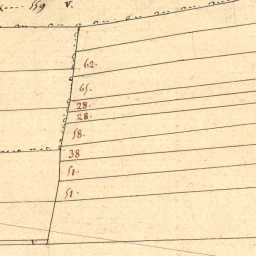 559 v.
62.
65.
28.
28.
58.
38
51.
51.